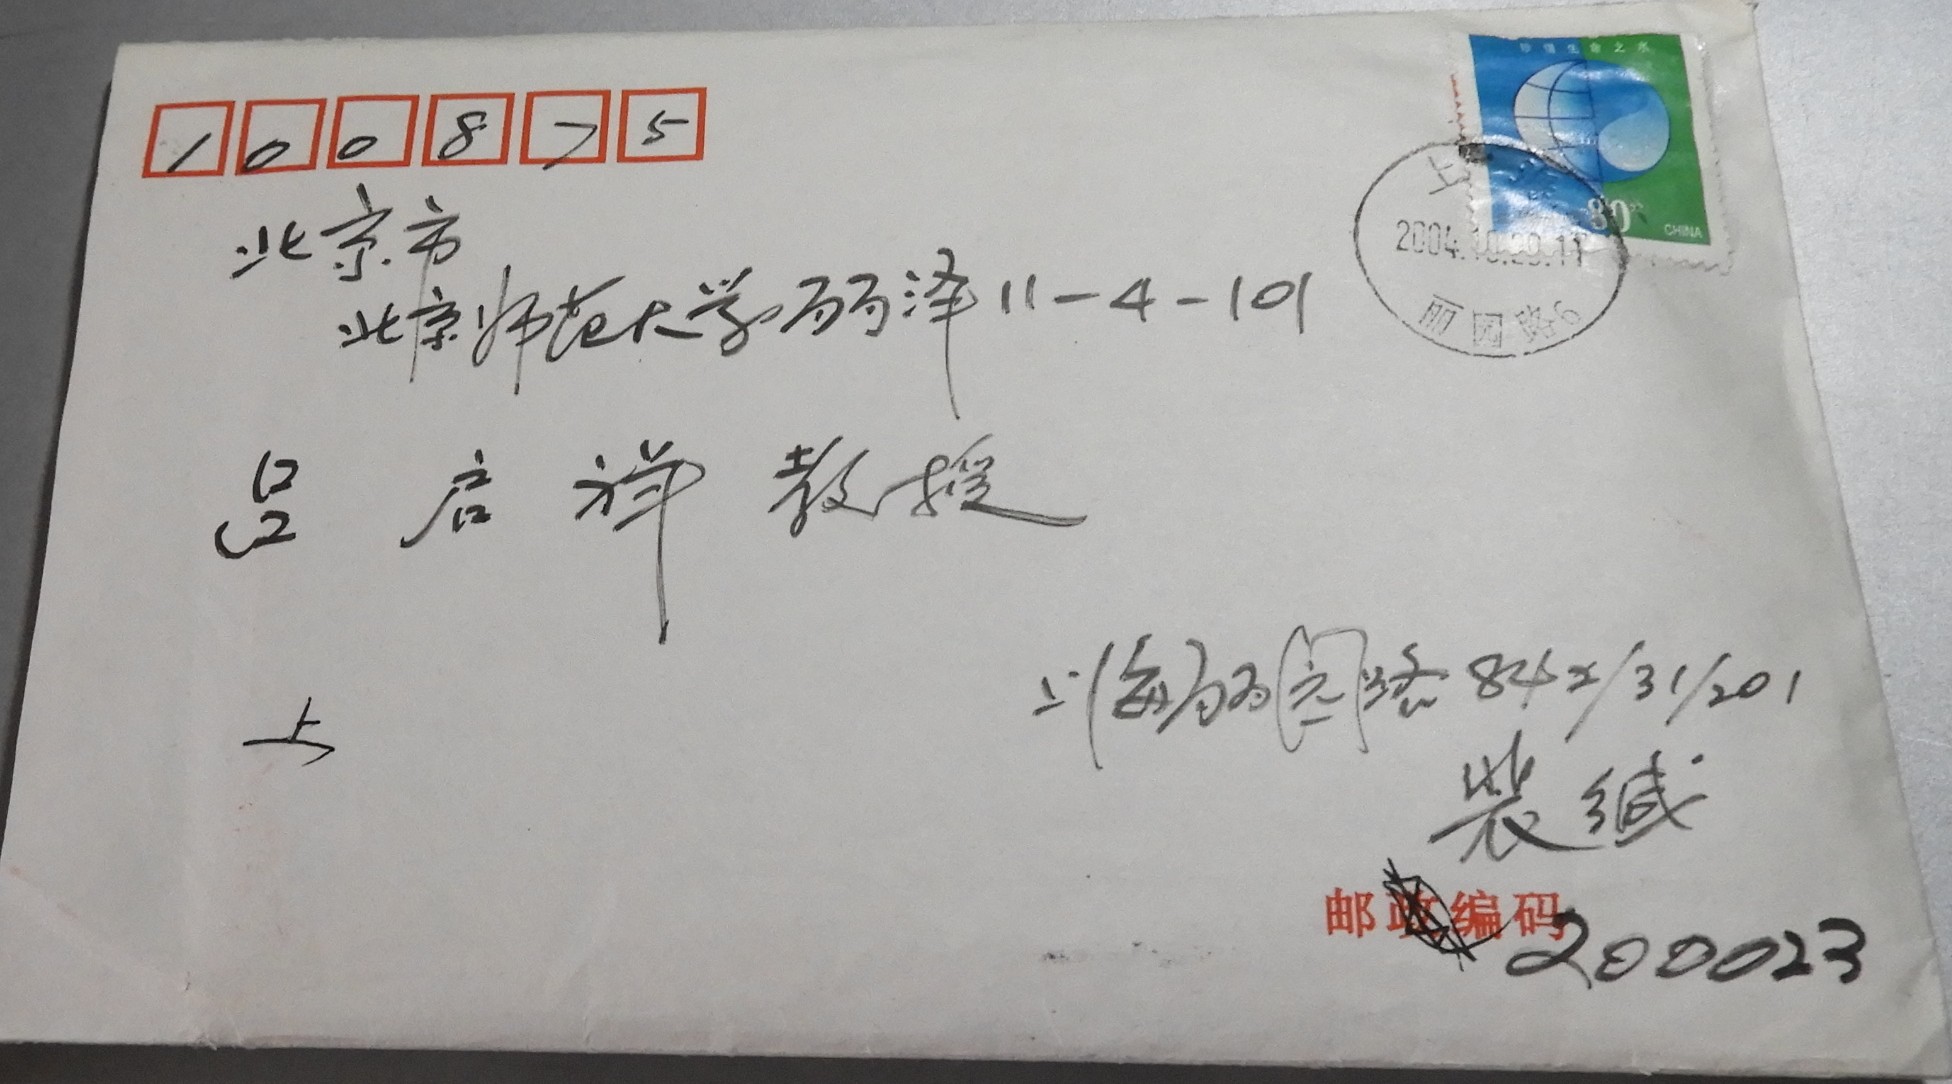 100875
珍惜生命之水
80分
CHINA
上海
2004.10.20.11
丽园路6
北京市
北京师范大学丽泽11-4-101
吕启祥教授
上海丽园路842/31/201
上
裴缄
邮政编码
200023